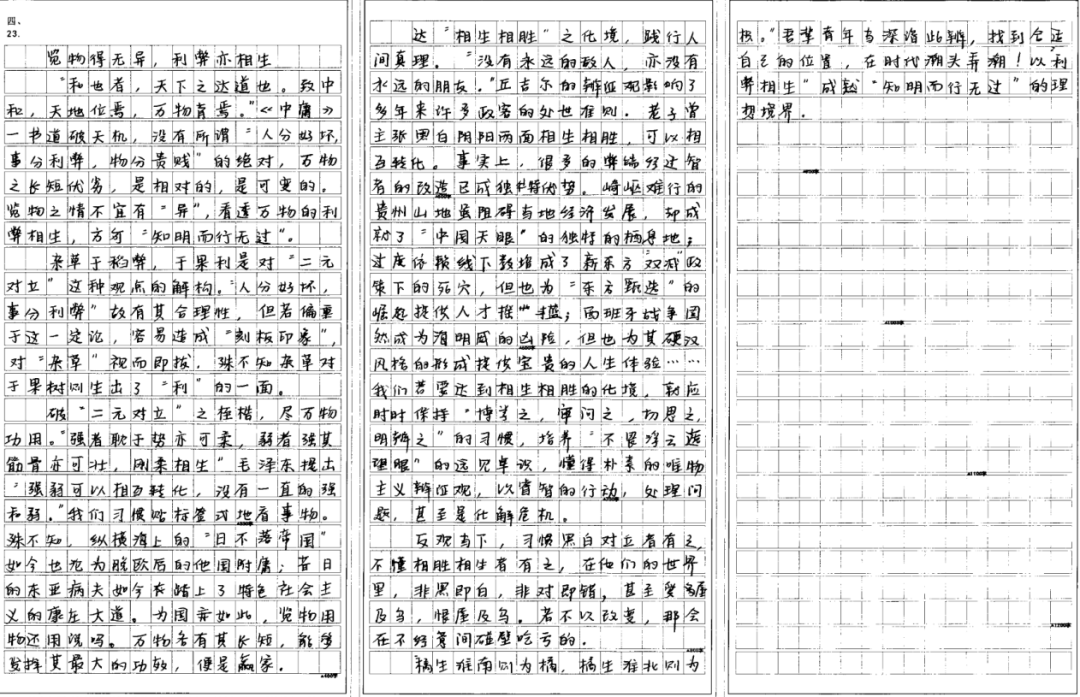 四、
23.
览物得无异，利弊亦相生
“和也者，天下之达道也。致中
和，天地位焉，万物育焉。”《中庸》
一书道破天机，没有所谓“人分好坏，
事分利弊，物分贵贱”的绝对，万物
之长短优劣，是相对的，是可变的。
览物之情不宜有“异”，看透万物的利
弊相生，方可“知明而行无过”。
杂草于稻弊，于果利是对“二元
对立”这种观点的解构。“人分好坏，
事分利弊”故有其合理性，但若偏重
于这一定论，容易造成“刻板印象”，
对“杂草”视而即拔，殊不知杂草对
于果树则生出了“利”的一面。
破“二元对立”之桎梏，尽万物
功用。“强者耽于势亦可柔，弱者强其
筋骨亦可壮，刚柔相生”毛泽东提出
“强弱可以相互转化，没有一直的强
和弱。”我们习惯贴标签式地看事物。
殊不知，纵横海上的“日不落帝国”
如今也沦为脱欧后的他国附庸；昔日
的东亚病夫如今奔踏上了特色社会主
义的康庄大道。为国亦如此，览物用
物还用说吗。万物各有其长短，能够
发挥其最大的功效，便是赢家。
达“相生相胜”之化境，践行人
间真理。“没有永远的敌人，亦没有
永远的朋友。”丘吉尔的辩证观影响了
多年来许多政客的处世准则。老子曾
主张黑白阴阳两面相生相胜，可以相
互转化。事实上，很多的弊端经过智
者的改造已成独特优势。崎岖难行的
贵州山地虽阻碍当地经济发展，却成
就了“中国天眼”的独特的栖身地；
过度依赖线下教培成了新东方“双减”政
策下的死穴，但也为“东方甄选”的
崛起提供人才摇篮；西班牙战争固
然成为海明威的凶险，但也为其硬汉
风格的形成提供宝贵的人生体验……
我们若要达到相生相胜的化境，就应
时时保持“博学之，审问之，切思之，
明辨之”的习惯，培养“不畏浮云遮
望眼”的远见卓识，懂得朴素的唯物
主义辩证观，以睿智的行动，处理问
题，甚至是化解危机。
反观当下，习惯黑白对立者有之，
不懂相胜相生者有之，在他们的世界
里，非黑即白，非对即错，甚至爱屋
及乌，恨屋及乌。若不以改变，那会
在不经意间碰壁吃亏的。
橘生淮南则为橘，橘生淮北则为
枳。”吾辈青年当深谙此辨，找到合适
自己的位置，在时代潮头弄潮！以“利
弊相生”成就“知明而行无过”的理
想境界。